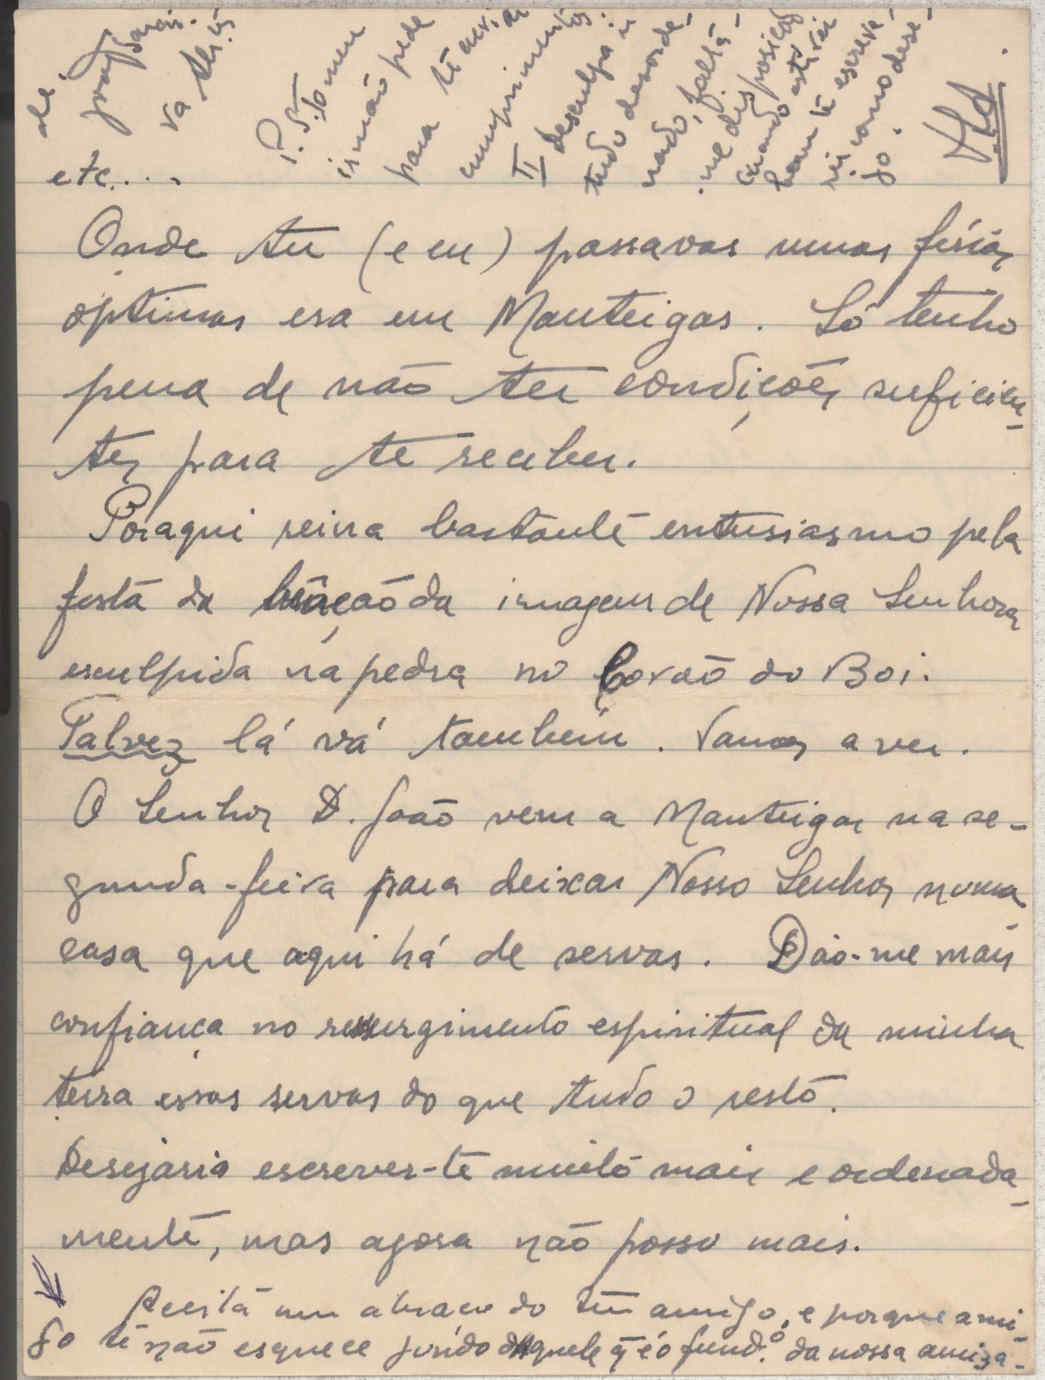 etc....
Onde tu (e eu) passavas umas férias
óptimas era em Manteigas. Só tenho
pena de não ter condições suficien-
tes para te receber.
Poraqui reina bastante entusiasmo pela
festa da benção da imagem de Nossa Senhora
esculpida na pedra no Covão do Boi.
Talvez lá vá também. Vamos a ver.
O Senhor D. João vem a Manteigas na se-
gunda-feira para deixar Nosso Senhor numa
casa que aqui há de servas. Dão-me mais
confiança no ressurgimento espiritual da minha
terra essas servas do que tudo o resto.
Desejaria escrever-te muito mais e ordenada-
mente, mas agora não posso mais.
Aceita um abraço do teu amigo, e porque ami-
go te não esquece junto daquele q̃ é o fund.º da nossa amiza-
de.
va
P.S. Io meu
irmão pede
para te enviar
cumprimentos.
II desculpa ir
tudo desorde-
nado, falta-
me disposição
quando estiver
bom te escreve-
rei como dese-
jo.